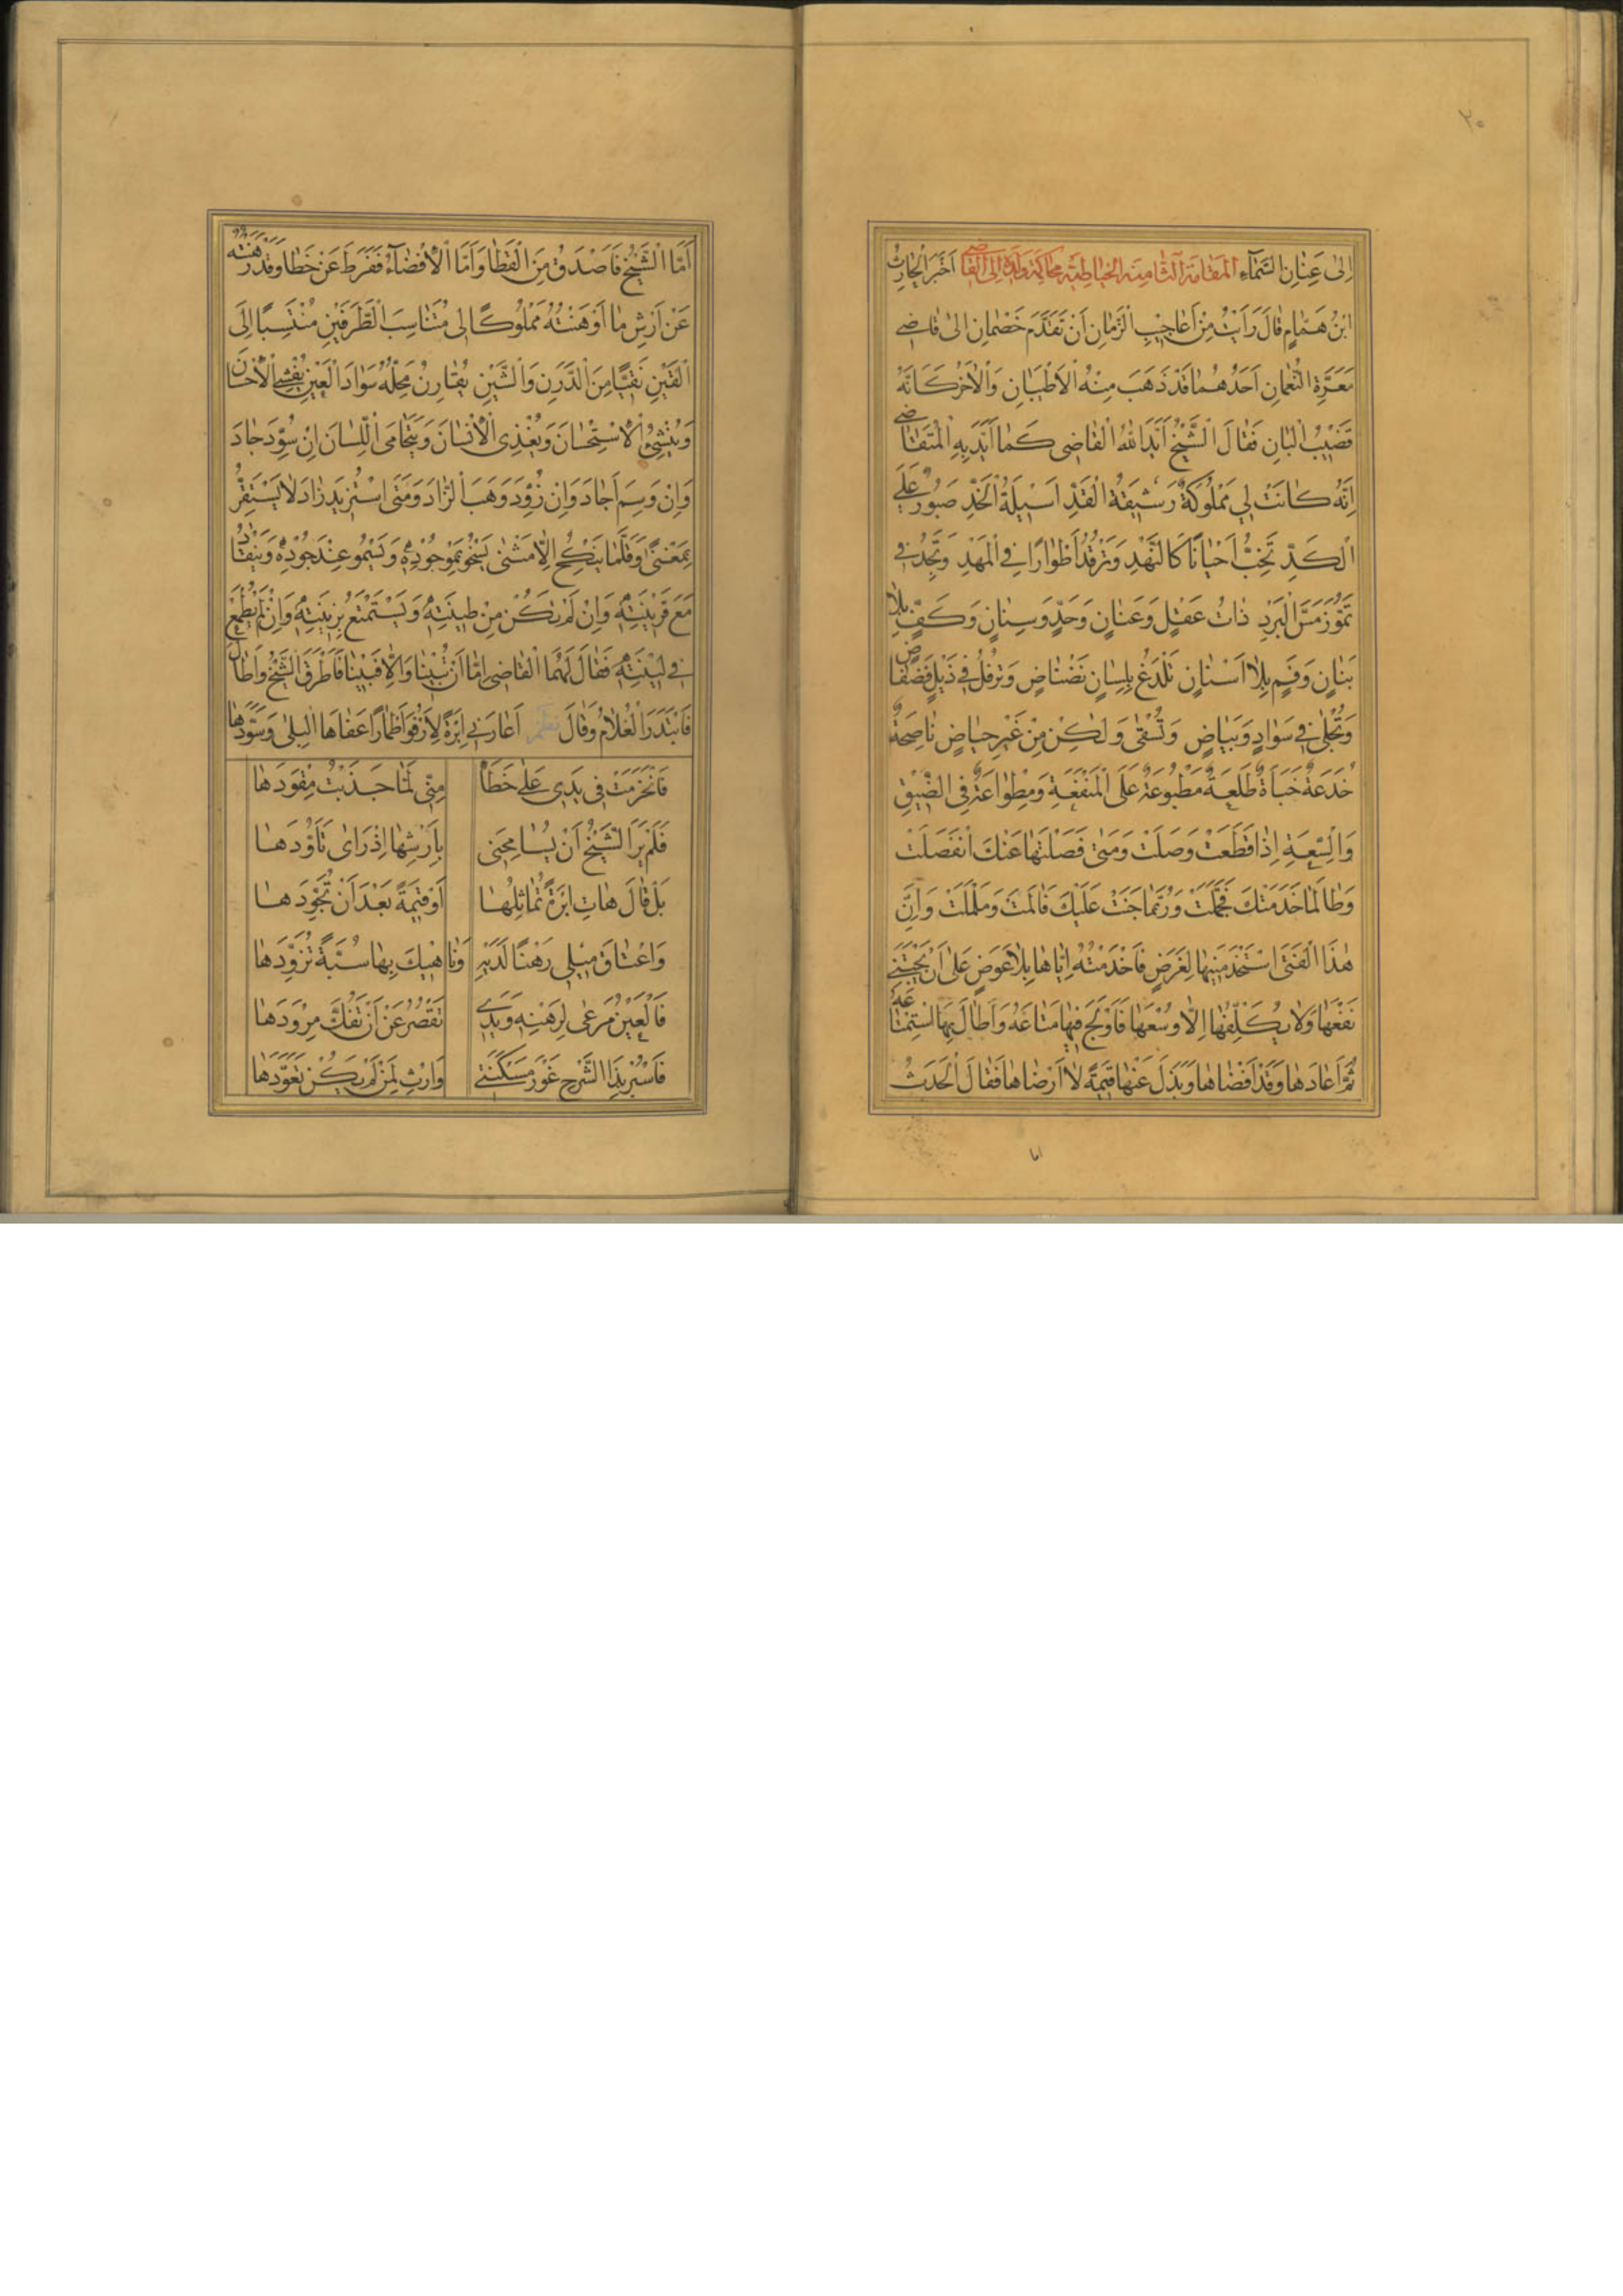 ٢٠
اِلىٰ عِنَانِ السَّمَآءِ المقامة الثامنة الخياطية محاكمة ولده الى القاضى اَخْبَرَ الْحَارِثُ
ابْنُ هَمَّامٍ قَالَ رَاَيْتُ مِنْ اَعَاجِيْبِ الزَّمَانِ اَنْ تَقَدَّمَ خَصْمَانِ اِلىٰ قَاضِي
مَعَرَّةِ النُّعْمَانِ اَحَدُهُمَا قَدْ ذَهَبَ مِنْهُ الْاَطْيَبَانِ وَالْاٰخَرُ كَاَنَّهُ
قَضِيْبُ الْبَانِ فَقَالَ الشَّيْخُ اَيَّدَ اللهُ الْقَاضِى كَمَا اَيَّدَ بِهِ الْمُتَقَاضِي
اِنَّهُ كَانَتْ لِي مَمْلُوْكَةٌ رَشِيْقَةُ الْقَدِّ اَسِيْلَةُ الْخَدِّ صَبُوْرٌ عَلَى
الْكَدِّ تَخُبُّ اَحْيَانًا كَالنَّهْدِ وَتَرْقُدُ اَطْوَارًا فِي الْمَهْدِ وَتَجِدُ فِي
تَمُّوْزَ مَسَّ الْبَرْدِ ذَاتُ عَقْلٍ وَعِنَانٍ وَحَدٍّ وَسِنَانٍ وَكَفٍّ بِلَا
بَنَانٍ وَفَمٍ بِلَا اَسْنَانٍ تَلْدَغُ بِلِسَانٍ نَضْنَاضٍ وَتَرْفُلُ فِي ذَيْلٍ فَضْفَاضٍ
وَتُجْلىٰ فِي سَوَادٍ وَبَيَاضٍ وَتُسْقىٰ وَلٰكِنْ مِنْ غَيْرِ حِيَاضٍ نَاصِحَةٌ
خُدَعَةٌ خُبَاَةٌ طُلَعَةٌ مَطْبُوْعَةٌ عَلَى الْمَنْفَعَةِ وَمِطْوَاعَةٌ فِى الضِّيْقِ
وَالسِّعَةِ اِذَا قَطَعَتْ وَصَلَتْ وَمَتىٰ فَصَلْتَهَا عَنْكَ انْفَصَلَتْ
وَطَالَمَا خَدَمَتْكَ فَجَمَّلَتْ وَرُبَّمَا جَنَتْ عَلَيْكَ فَاٰلَمَتْ وَمَلْمَلَتْ وَاِنَّ
هٰذَا الْفَتَى اسْتَخْدَمَنِيْهَا لِغَرَضٍ فَاَخْدَمْتُهُ اِيَّاهَا بِلَا عِوَضٍ عَلىٰ اَنْ يَجْتَنِيَ
نَفْعَهَا وَلَا يُكَلِّفَهَا اِلَّا وُسْعَهَا فَاَوْلَجَ فِيْهَا مَتَاعَهُ وَاَطَالَ بِهَا اسْتِمْتَاعَهُ
ثُمَّ اَعَادَهَا وَقَدْ اَفْضَاهَا وَبَذَلَ عَنْهَا قِيْمَةً لَا اَرْضَاهَا فَقَالَ الْحَدَثُ
اما
اَمَّا الشَّيْخُ فَاَصْدَقُ مِنَ الْقَطَا وَاَمَّا الْاِفْضَاءُ فَفَرَطَ عَنْ خَطَا وَقَدْ رَهَنْتُهُ
عَنْ اَرْشِ مَا اَوْهَنْتُهُ مَمْلُوْكًا لِى مُتَنَاسِبَ الطَّرَفَيْنِ مُنْتَسِبًا اِلَى
الْقَيْنِ نَقِيًّا مِنَ الدَّرَنِ وَالشَّيْنِ يُقَارِنُ مَحَلُّهُ سَوَادَ الْعَيْنِ يُفْشِي الْاِحْسَانَ
وَيُنْشِئُ الْاِسْتِحْسَانَ وَيُغْذِى الْاِنْسَانَ وَيَتَحَامَى اللِّسَانَ اِنْ سُوِّدَ جَادَ
وَاِنْ وَسِمَ اَجَادَ وَاِنْ زُوِّدَ وَهَبَ الزَّادَ وَمَتَى اسْتُزِيْدَ زَادَ لَا يَسْتَقِرُّ
بِمَغْنًى وَقَلَّمَا يَنْكِحُ اِلَّا مَثْنىٰ يَسْخُوْ بِمَوْجُوْدِهِ وَيَسْمُو عِنْدَ جُوْدِهِ وَيَنْقَادُ
مَعَ قَرِيْنَتِهِ وَاِنْ لَمْ تَكُنْ مِنْ طِيْنَتِهِ وَيُسْتَمْتَعُ بِزِيْنَتِهِ وَاِنْ لَمْ يُطْمَعْ
فِي لِيْنَتِهِ فَقَالَ لَهُمَا الْقَاضِى اِمَّا اَنْ تُبِيْنَا وَاِلَّا فَبِيْنَا فَاَطْرَقَ الشَّيْخُ وَاَطَالَ
فَابْتَدَرَ الْغُلَامُ وَقَالَ نظم اَعَارَنِي اِبْرَةً لِاَرْفُوَ اَطْمَارًا عَفَاهَا الْبِلىٰ وَسَوَّدَهَا
فَانْخَرَمَتْ فِى يَدِى عَلىٰ خَطَاٍ مِنِّى لَمَّا جَذَبْتُ مِقْوَدَهَا
فَلَمْ يَرَ الشَّيْخُ اَنْ يُسَامِحَنِى بِاَرْشِهَا اِذْ رَاٰى تَاَوُّدَهَا
بَلْ قَالَ هَاتِ اِبْرَةً تُمَاثِلُهَا اَوْ قِيْمَةً بَعْدَ اَنْ تُجَوِّدَهَا
وَاعْتَاقَ مِيْلِى رَهْنًا لَدَيْهِ وَنَاهِيْكَ بِهَا سُبَّةً تَزَوَّدَهَا
فَالْعَيْنُ مَرْهٰى لِرَهْنِهِ وَيَدِي تَقْصُرُ عَنْ اَنْ تَفُكَّ مِرْوَدَهَا
فَاسْبُرْ بِذَا الشَّرْحِ غَوْرَ مَسْكَنَتِي وَارْثِ لِمَنْ لَمْ يَكُنْ تَعَوَّدَهَا